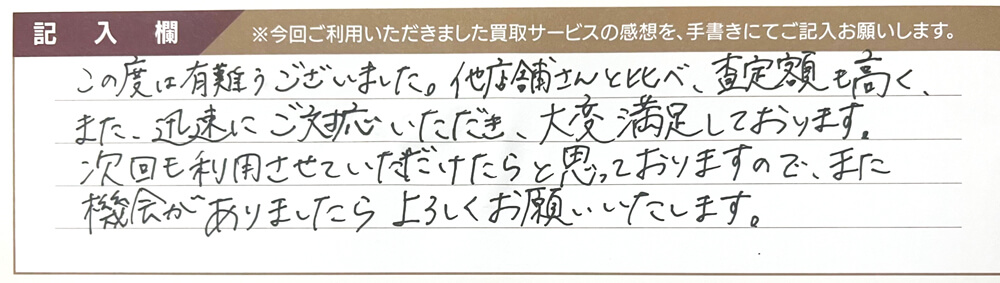 記入欄
※今回ご利用いただきました買取サービスの感想を、手書きにてご記入お願いします。
この度は有難うございました。他店舗さんと比べ、査定額も高く、
また、迅速にご対応いただき、大変満足しております。
次回も利用させていただけたらと思っておりますので、また
機会がありましたら上ろしくお願いいたします。